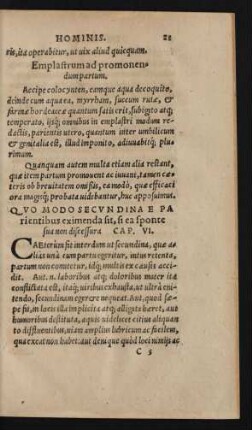 HOMINIS. 22
ris, ita operabitur, ut uix aliud quicquam.
Emplastrum ad promouen-
dum partum.
Recipe colocynten, eamque aqua decoquito,
deinde cum aqua ea, myrrham, succum rutæ, &
farina hordeacea quantum satis erit, subigito atq;
temperato, ijsq; omnibus in emplastri modum re-
dactis, parientis utero, quantum inter umbilicum
& genitalia est, illud imponito, adiuuabitq́; plu-
rimum.
Quanquam autem multa etiam alia restant,
quæ item partum promouent ac iuuant, tamen cæ
teris ob breuitatem omissis, ea modò, quæ efficaci
ora magisq́; probata uidebantur, huc apposuimus.
QVO MODO SECVNDINAE PA
rientibus eximenda sit, si ea sponte
sua non discesserit CAP. VI.
CAEterùm sit interdum ut secundina, quæ a-
liàs unà cum partu egeritur, intus retenta,
partum non comitetur, idq́; multis ex causis acci-
dit. Aut. n. laboribus atq; doloribus mater ita
conflictata est, itaq; uiribus exhausta, ut ultrà eni-
tendo, secundinam egerere nequeat. Aut, quod sæ-
pe fit, in locis illa implicita atq; alligata hæret, aut
humoribus destituta, aquis uidelicet citius aliquan
to diffluentibus, uiam amplius lubricam ac facilem,
qua exeat non habet: aut denique quòd loci nimijs ac
C 5